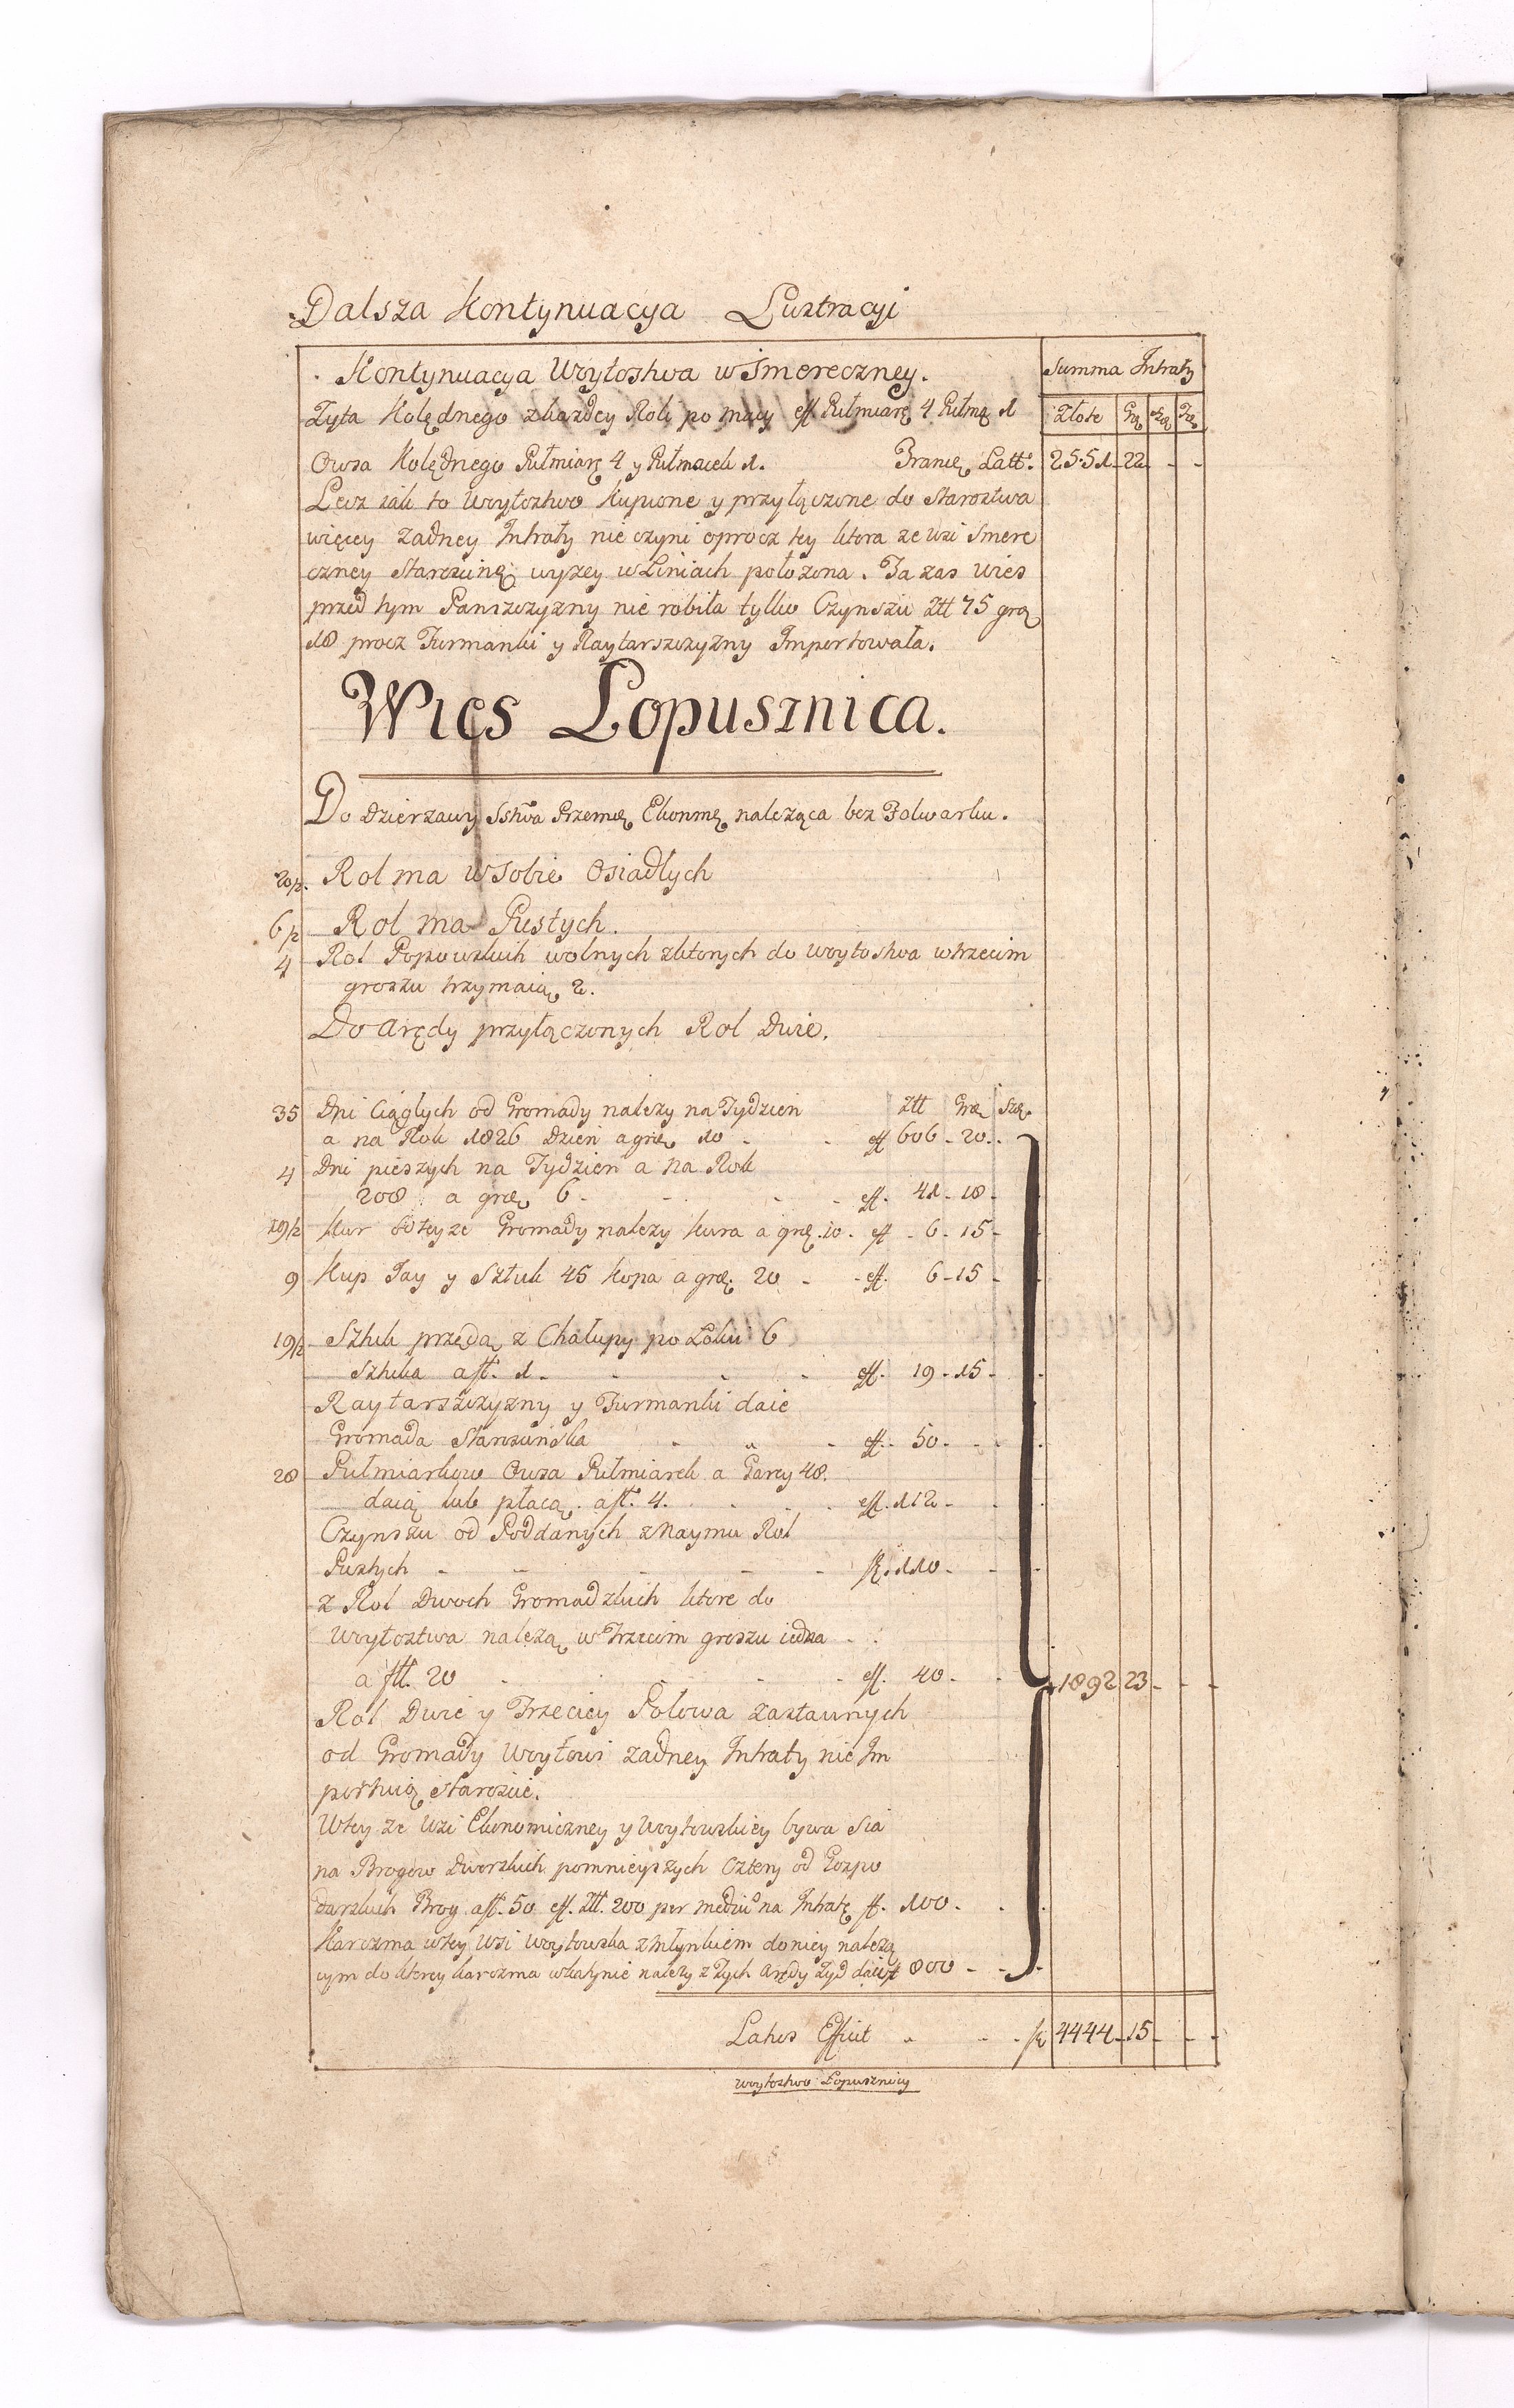 Dalsza Kontynuacya Lustracyi
Kontynuacya Woytostwa w Smereczney.
Summa Intraty
Zyta Kolędnego zkazdey Roli po macy eff. Pułmiarę 4 Pułmę 1
Złote Grę Szę
Owsa Kolędnego Pułmiarę 4 y Pułmacek 1.
Latt. 2551 22 - -
Lecz iak to Woytostwo kupione y przyłączone do Starostwa
więcey zadney Intraty nie czyni oprocz tey ktora ze wsi Smere
czney wyzey w Liniach połozona. Ta zas wies
przed tym Panszczyzny nie robiła tylko Czynszu Ztt 75 grę
18 procz Furmanki y Raytarszczyzny Importowała.
Wies Lopusznica.
Do Dzierzawy Sstwa Przemę Ekonmę naleząca bez Folwarku.
20/2. Rol ma w Sobie Osiadłych
6/2 Rol ma Pustych.
4 Rol Popowskich wolnych zktorych do Woytostwa wtrzecim
groszu trzymaią 2.
Do Arędy przyłączonych Rol Dwie.
35 Dni Ciągłych od Gromady nalezy na Tydzien Ztt Grę Szę.
a na Rok 1826 Dzien a grę 10 - - eff 606 - 20 -
4 Dni pieszych na Tydzien a na Rok
208 a grę 6 - - - - eff. 41 - 18 -
19/2 Kur od teyze Gromady nalezy kura a grę. 10. eff - 6 - 15 -
9 Kup Jay y Sztuk 45 kopa a grę. 20 - - eff. 6 - 15 -
19/2 Sztuk przędą z Chałupy po Łokci 6
Sztuka a ft. 1 - - - - eff. 19 - 15 -
Raytarszczyzny y Furmanki daie
Gromada - - - eff. - 50 - - -
28 Pułmiarkow Owsa Pułmiarek a Garcy 48.
daią lub płacą a ft. 4. - - - eff. 112 - -
Czynszu od Poddanych z Naymu Rol
Pustych - - - - - 110 - - -
z Rol Dwoch Gromadzkich ktore do
Woytostwa nalezą w Trzecim groszu iedna
a ftt. 20 - - - - eff. 40 - - 1892 23 - - -
Rol Dwie y Trzeciey Połowa zastawnych
od Gromady Woytowi zadney Intraty nie Im
portuią
Wtey ze Wsi Ekonomiczney y Woytowskiey bywa Sia
na Brogow Dworskich pomnieyszych Cztery od Gospo
darskich Brog a ft. 50 eff. Ztt. 200 per mediū na Intratę ft. 100 - -
Karczma wtey Wsi Woytowska z młynkiem do niey nalezą
cym do ktorey karczma nalezy z Tych Arędy Zyd daie ft 800 - -
Latus Efficit - - - 4444 - 15 - - -
Woytostwo Lopusznicy